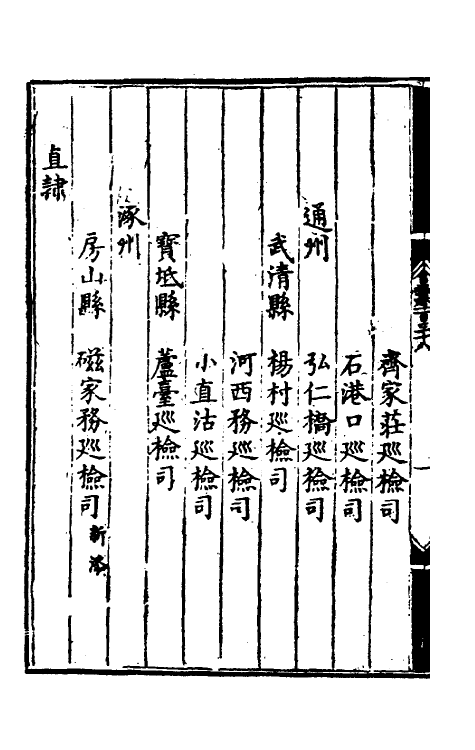 齊家莊巡檢司
石港口巡檢司
通州 弘仁橋巡檢司
武清縣 楊村巡檢司
河西務巡檢司
小直沽巡檢司
寶坻縣 蘆臺巡檢司
涿州
房山縣 磁家務巡檢司 新添
直隸